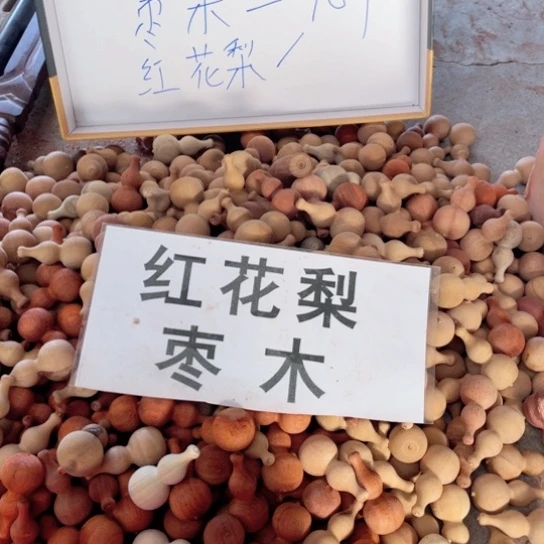 枣木一
红花梨
红花梨
枣木